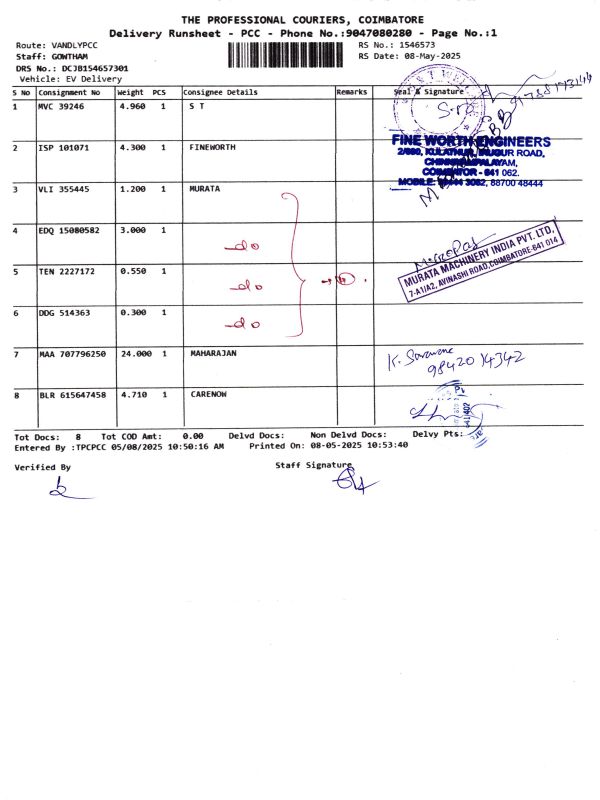 THE PROFESSIONAL COURIERS, COIMBATORE
Delivery Runsheet - PCC - Phone No.:9047080280 - Page No.:1
Route: VANDLYPCC
RS No.: 1546573
Staff: GOWTHAM
RS Date: 08-May-2025
DRS No.: DCJB154657301
Vehicle: EV Delivery
S No Consignment No Weight PCS Consignee Details Remarks Seal & Signature
1 MVC 39246 4.960 1 S T
2 ISP 101071 4.300 1 FINEWORTH
FINE WORTH ENGINEERS
ROAD,
COIMBATOR - 641 062.
MOBILE: 3082, 88700 48444
3 VLI 355445 1.200 1 MURATA
4 EDQ 15080582 3.000 1 do
MURATA MACHINERY INDIA PVT. LTD,
7-A1/A2, AVINASHI ROAD, COIMBATORE-641 014
5 TEN 2227172 0.550 1 do
6 DDG 514363 0.300 1 do
7 MAA 707796250 24.000 1 MAHARAJAN
9842014342
8 BLR 615647458 4.710 1 CARENOW
Tot Docs: 8 Tot COD Amt: 0.00 Delvd Docs: Non Delvd Docs: Delvy Pts:
Entered By :TPCPCC 05/08/2025 10:50:16 AM Printed On: 08-05-2025 10:53:40
Verified By
Staff Signature